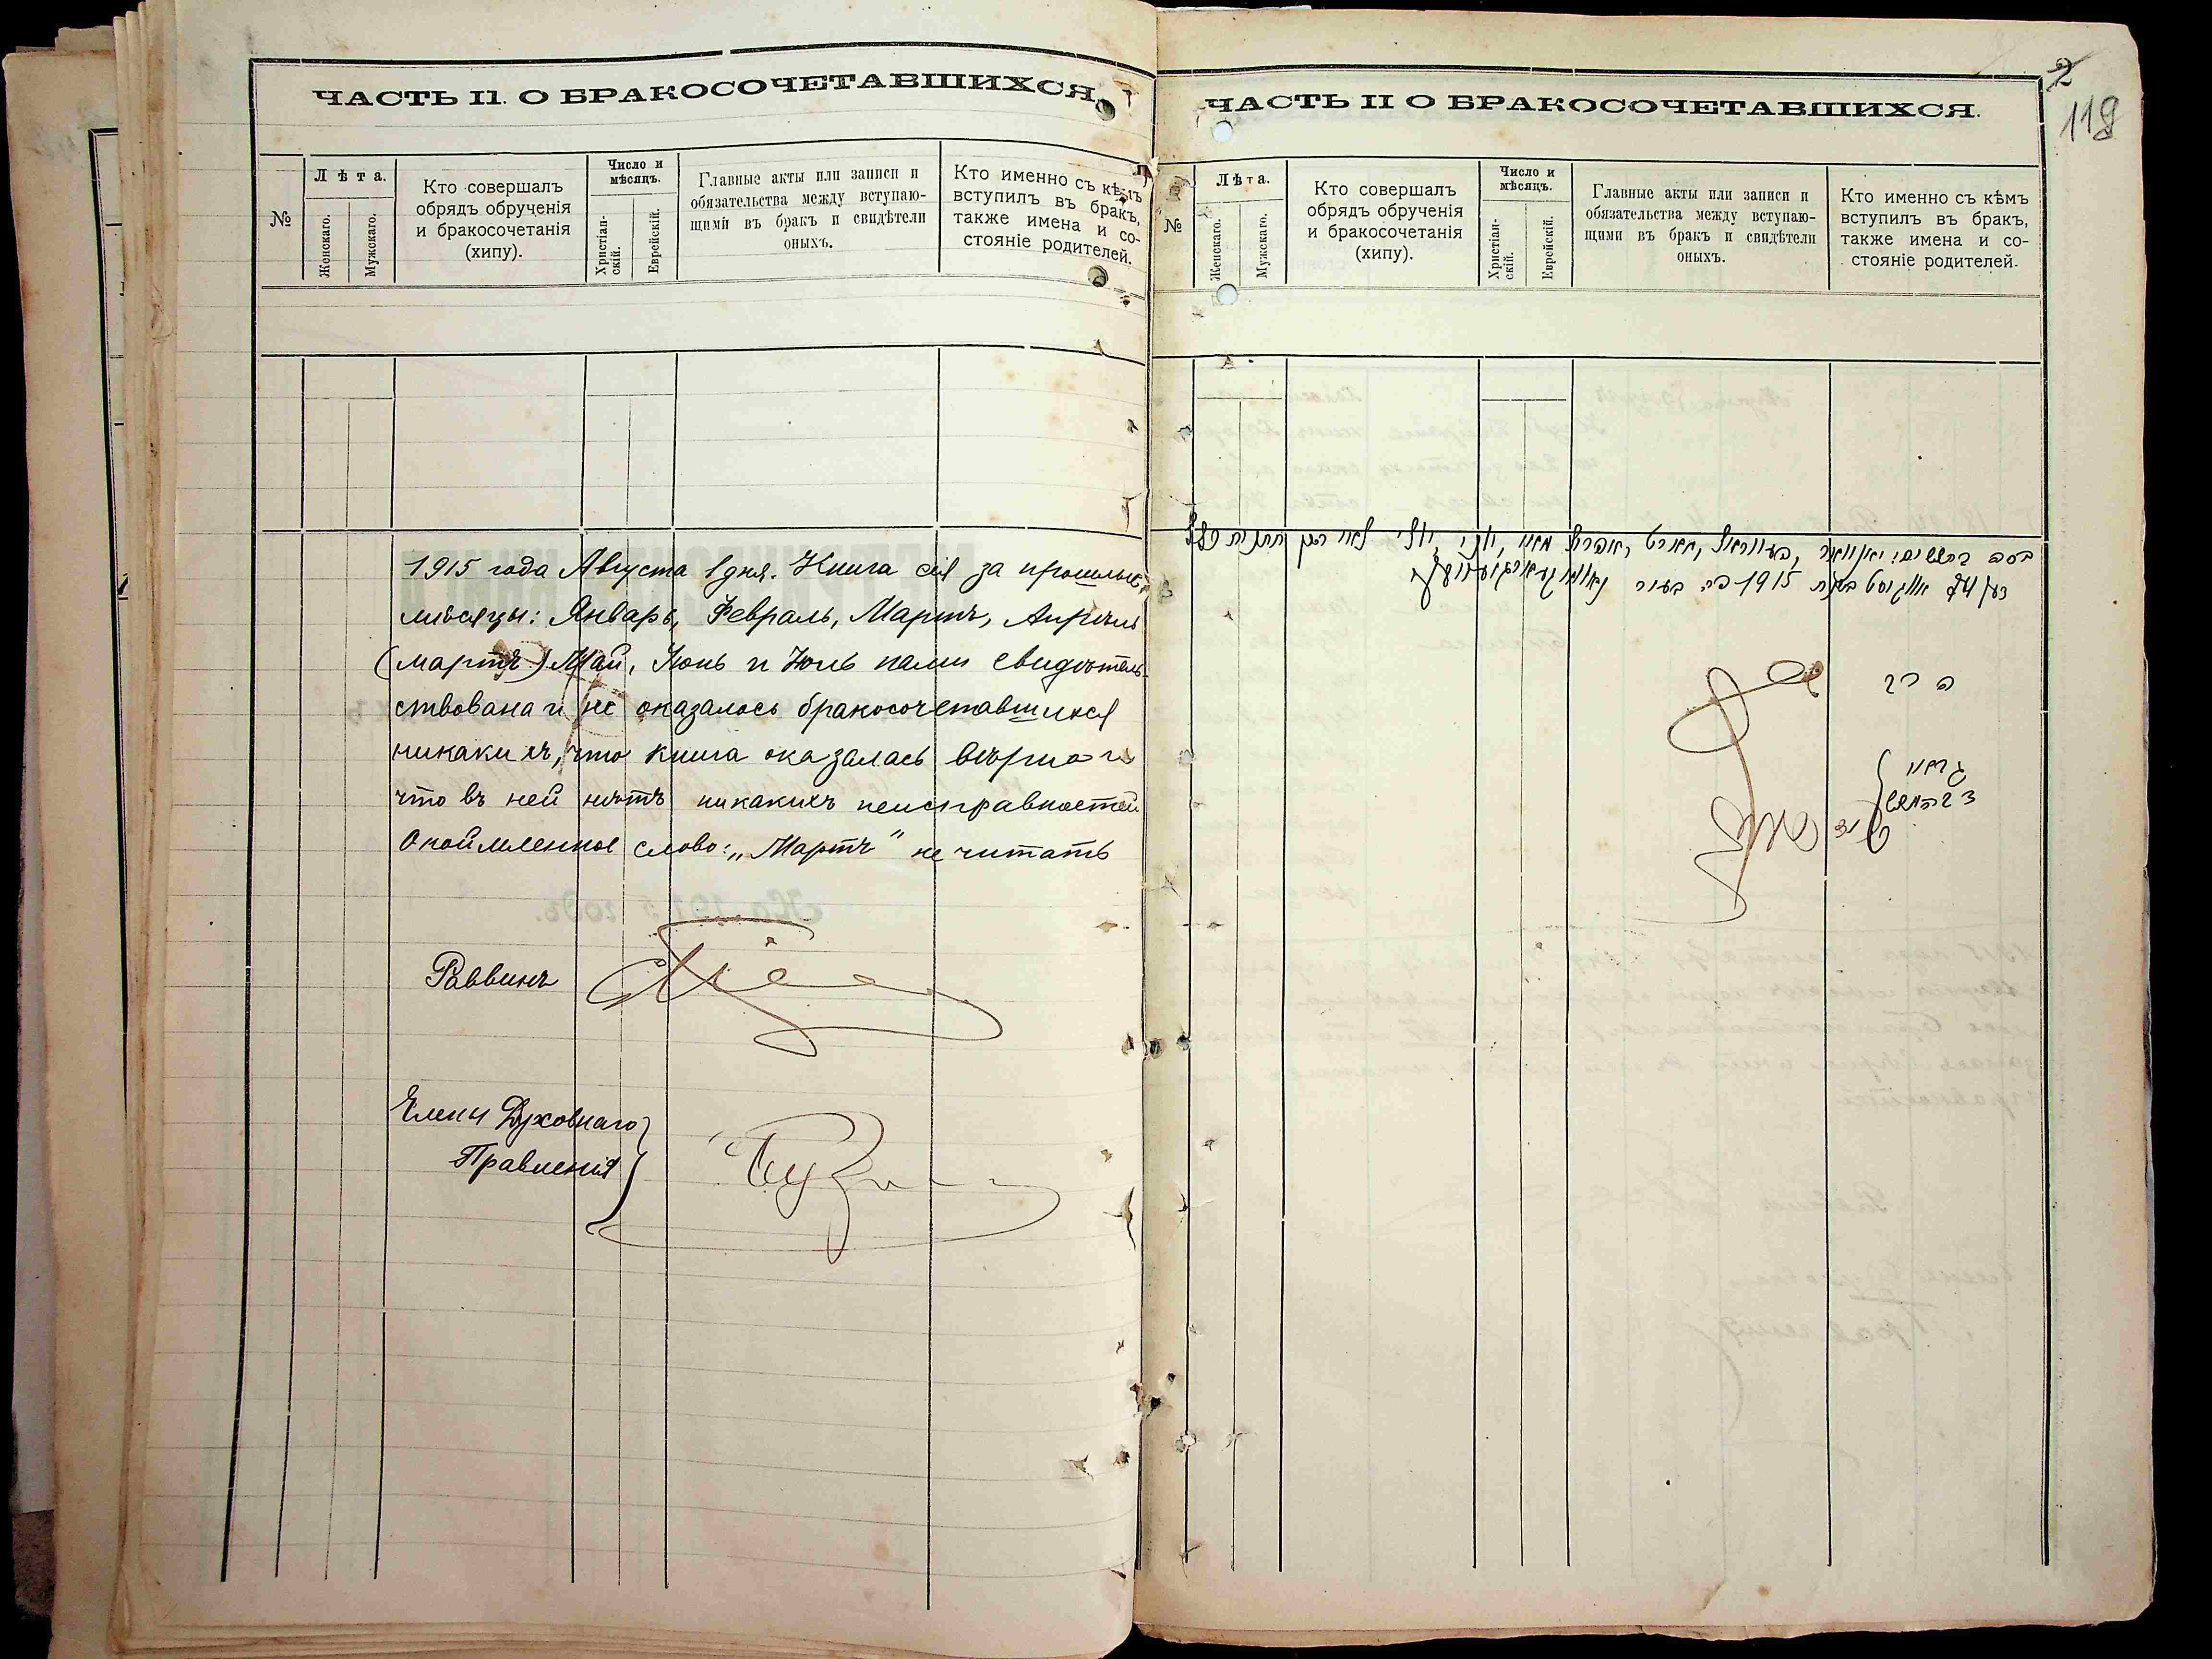 ЧАСТЬ II. О БРАКОСОЧЕТАВШИХСЯ.
№
Лѣта.
Женскаго.
Мужскаго.
Кто совершалъ
обрядъ обрученія
и бракосочетанія
(хипу).
Число и
мѣсяцъ.
Христіан-
скій.
Еврейскій.
Главные акты или записи и
обязательства между вступаю-
щими въ бракъ и свидѣтели
оныхъ.
Кто именно съ кѣмъ
вступилъ въ бракъ,
также имена и со-
стояніе родителей.
1915 года Августа 1 дня. Книга сія за прошлые
мѣсяцы: Январь, Февраль, Мартъ, Апрѣль
(мартъ) Май, Іюнь и Юль нами свидѣтель-
ствована и не оказалось бракосочетавшихся
никакихъ, что книга оказалась вѣрна и
что въ ней нѣтъ никакихъ неисправностей
Окоймленное слово: „Мартъ" не читать
Раввинъ
Члены Духовнаго
Правленія
2
118
ЧАСТЬ II О БРАКОСОЧЕТАВШИХСЯ.
№
Лѣта.
Женскаго.
Мужскаго.
Кто совершалъ
обрядъ обрученія
и бракосочетанія
(хипу).
Число и
мѣсяцъ.
Христіан-
скій.
Еврейскій.
Главные акты или записи и
обязательства между вступаю-
щими въ бракъ и свидѣтели
оныхъ.
Кто именно съ кѣмъ
вступилъ въ бракъ,
также имена и со-
стояніе родителей.
יאנואר, פעווראל, מארט, אפריל, מאי, יוני, יולי
אויגוסט 1915
הרב